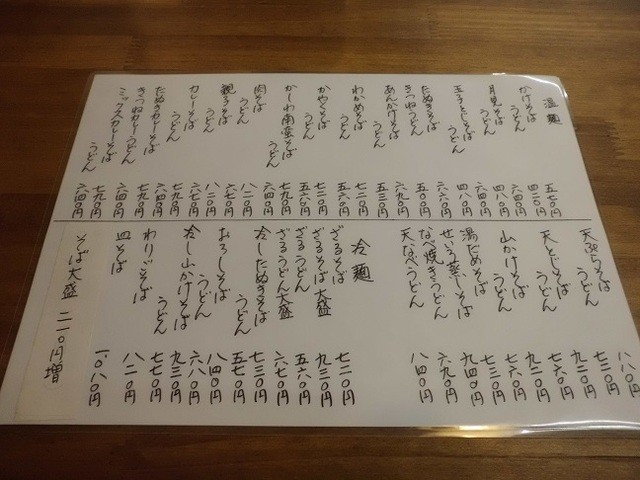 温麺
かけそば 五七〇円
うどん 四二〇円
月見そば 六四〇円
うどん 四八〇円
玉子とじそば 六四〇円
うどん 四八〇円
たぬきそば
きつねうどん 五〇〇円
あんかけそば 六九〇円
うどん 五三〇円
わかめそば 七二〇円
うどん 五六〇円
かやくそば 七二〇円
うどん 五六〇円
かしわ南蛮そば 七九〇円
うどん 六四〇円
肉そば 八二〇円
うどん 六七〇円
親子そば 八二〇円
うどん 六七〇円
カレーそば 七九〇円
うどん 六四〇円
たぬきカレーそば 七九〇円
きつねカレーうどん 六四〇円
ミックスカレーそば 七九〇円
うどん 六四〇円
天ぷらそば 八八〇円
うどん 七三〇円
天とじそば 九二〇円
うどん 七六〇円
山かけそば 九二〇円
うどん 七六〇円
湯だめそば 七三〇円
せいろ蒸しそば 九四〇円
なべ焼きうどん 六九〇円
天なべうどん 八四〇円
冷麺
ざるそば 七二〇円
ざるそば大盛 九三〇円
ざるうどん 五六〇円
ざるうどん大盛 六七〇円
冷したぬきそば 七三〇円
うどん 五七〇円
おろしそば 八四〇円
うどん 六八〇円
冷し山かけそば 九三〇円
うどん 七七〇円
わりごそば 八二〇円
皿そば 一、〇八〇円
そば大盛 二一〇円増